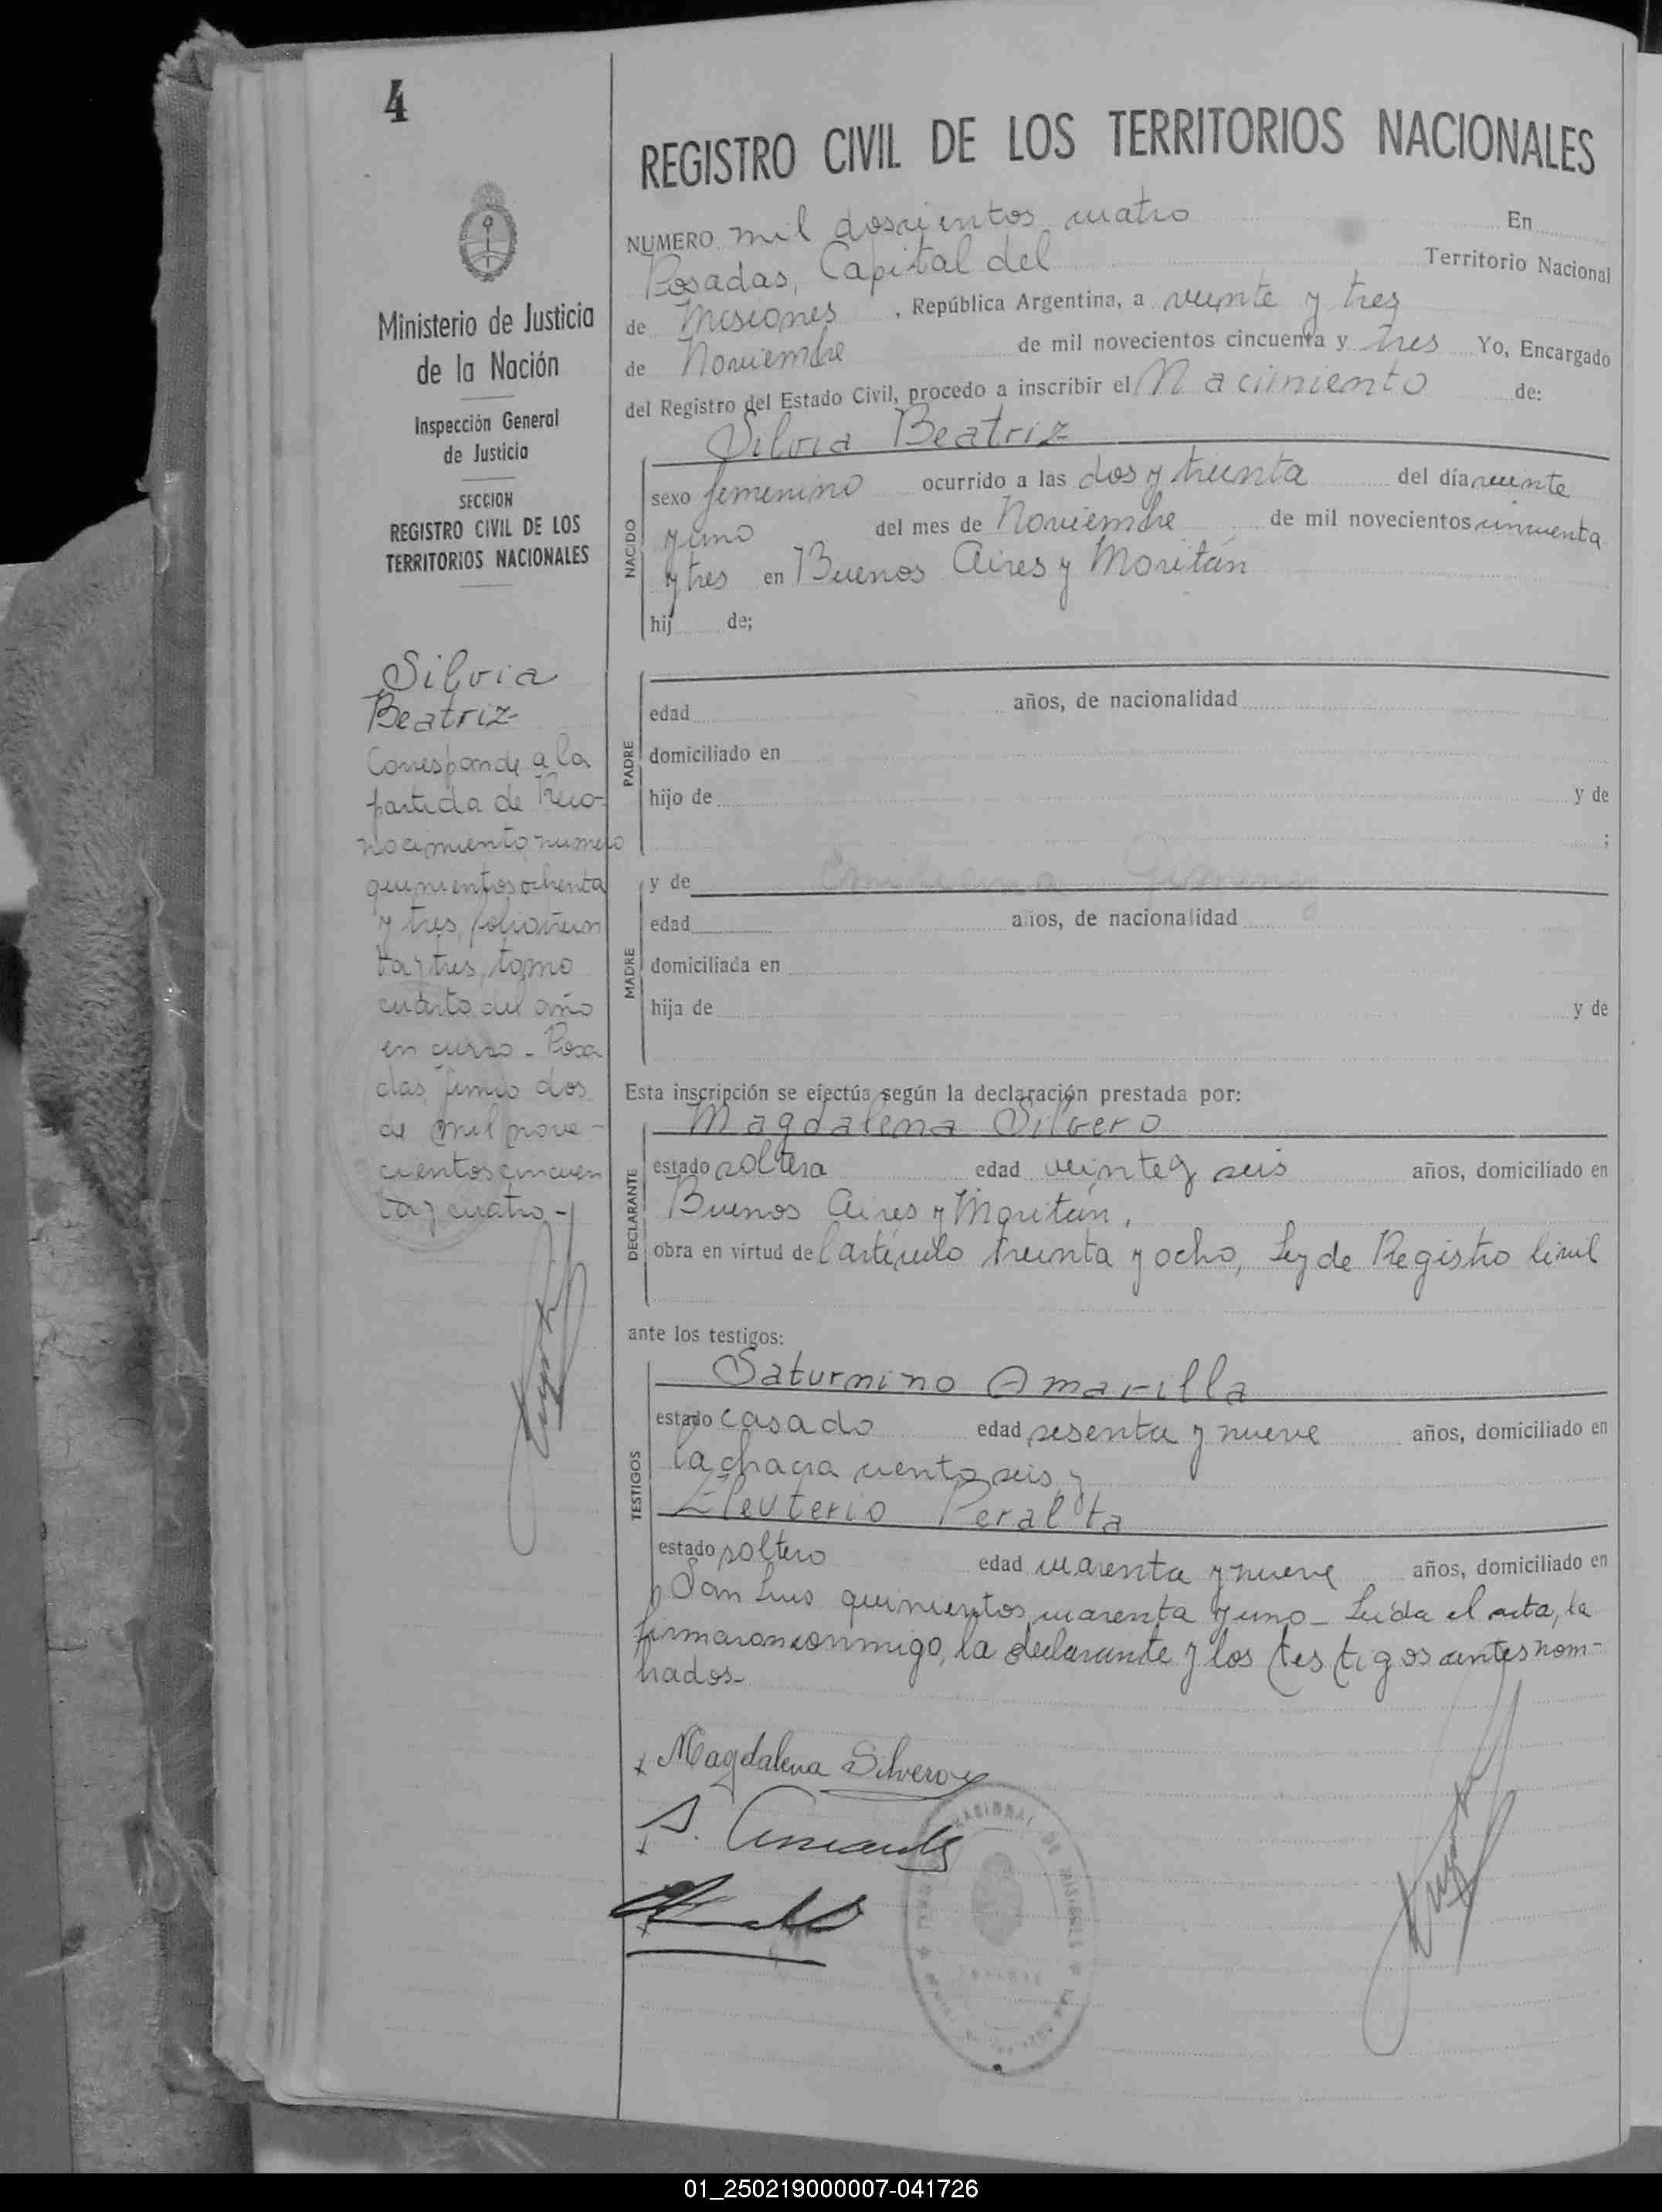 4
Ministerio de Justicia
de la Nación
Inspección General
de Justicia
SECCION
REGISTRO CIVIL DE LOS
TERRITORIOS NACIONALES
Silvia
Beatriz
Corresponde a la
partida de Reco-
nocimiento numero
quinientos ochenta
y tres, folio trein
ta y tres, tomo
cuarto del año
en curso - Posa
das, junio dos
de mil nove-
cientos cincuen
ta y cuatro -
REGISTRO CIVIL DE LOS TERRITORIOS NACIONALES
NUMERO mil doscientos cuatro En
Posadas, Capital del Territorio Nacional
de Misiones, República Argentina, a veinte y tres
de Noviembre de mil novecientos cincuenta y tres Yo, Encargado
del Registro del Estado Civil, procedo a inscribir el Nacimiento de:
Silvia Beatriz
NACIDO
sexo femenino ocurrido a las dos y treinta del día veinte
y uno del mes de Noviembre de mil novecientos cincuenta
y tres en Buenos Aires y Moritán
hij de;
PADRE
edad años, de nacionalidad
domiciliado en
hijo de y de
;
MADRE
y de
edad años, de nacionalidad
domiciliada en
hija de y de
Esta inscripción se efectúa según la declaración prestada por:
Magdalena Silvero
DECLARANTE
estado soltera edad veinte y seis años, domiciliado en
Buenos Aires y Moritán,
obra en virtud del artículo treinta y ocho, Ley de Registro Civil
ante los testigos:
Saturnino Amarilla
TESTIGOS
estado casado edad sesenta y nueve años, domiciliado en
la chacra ciento seis y
Eleuterio Peralta
estado soltero edad cuarenta y nueve años, domiciliado en
San Luis quinientos cuarenta y uno - Leída el acta, la
firmaron conmigo, la declarante y los testigos antes nom-
brados-
x Magdalena Silvero
01_250219000007-041726